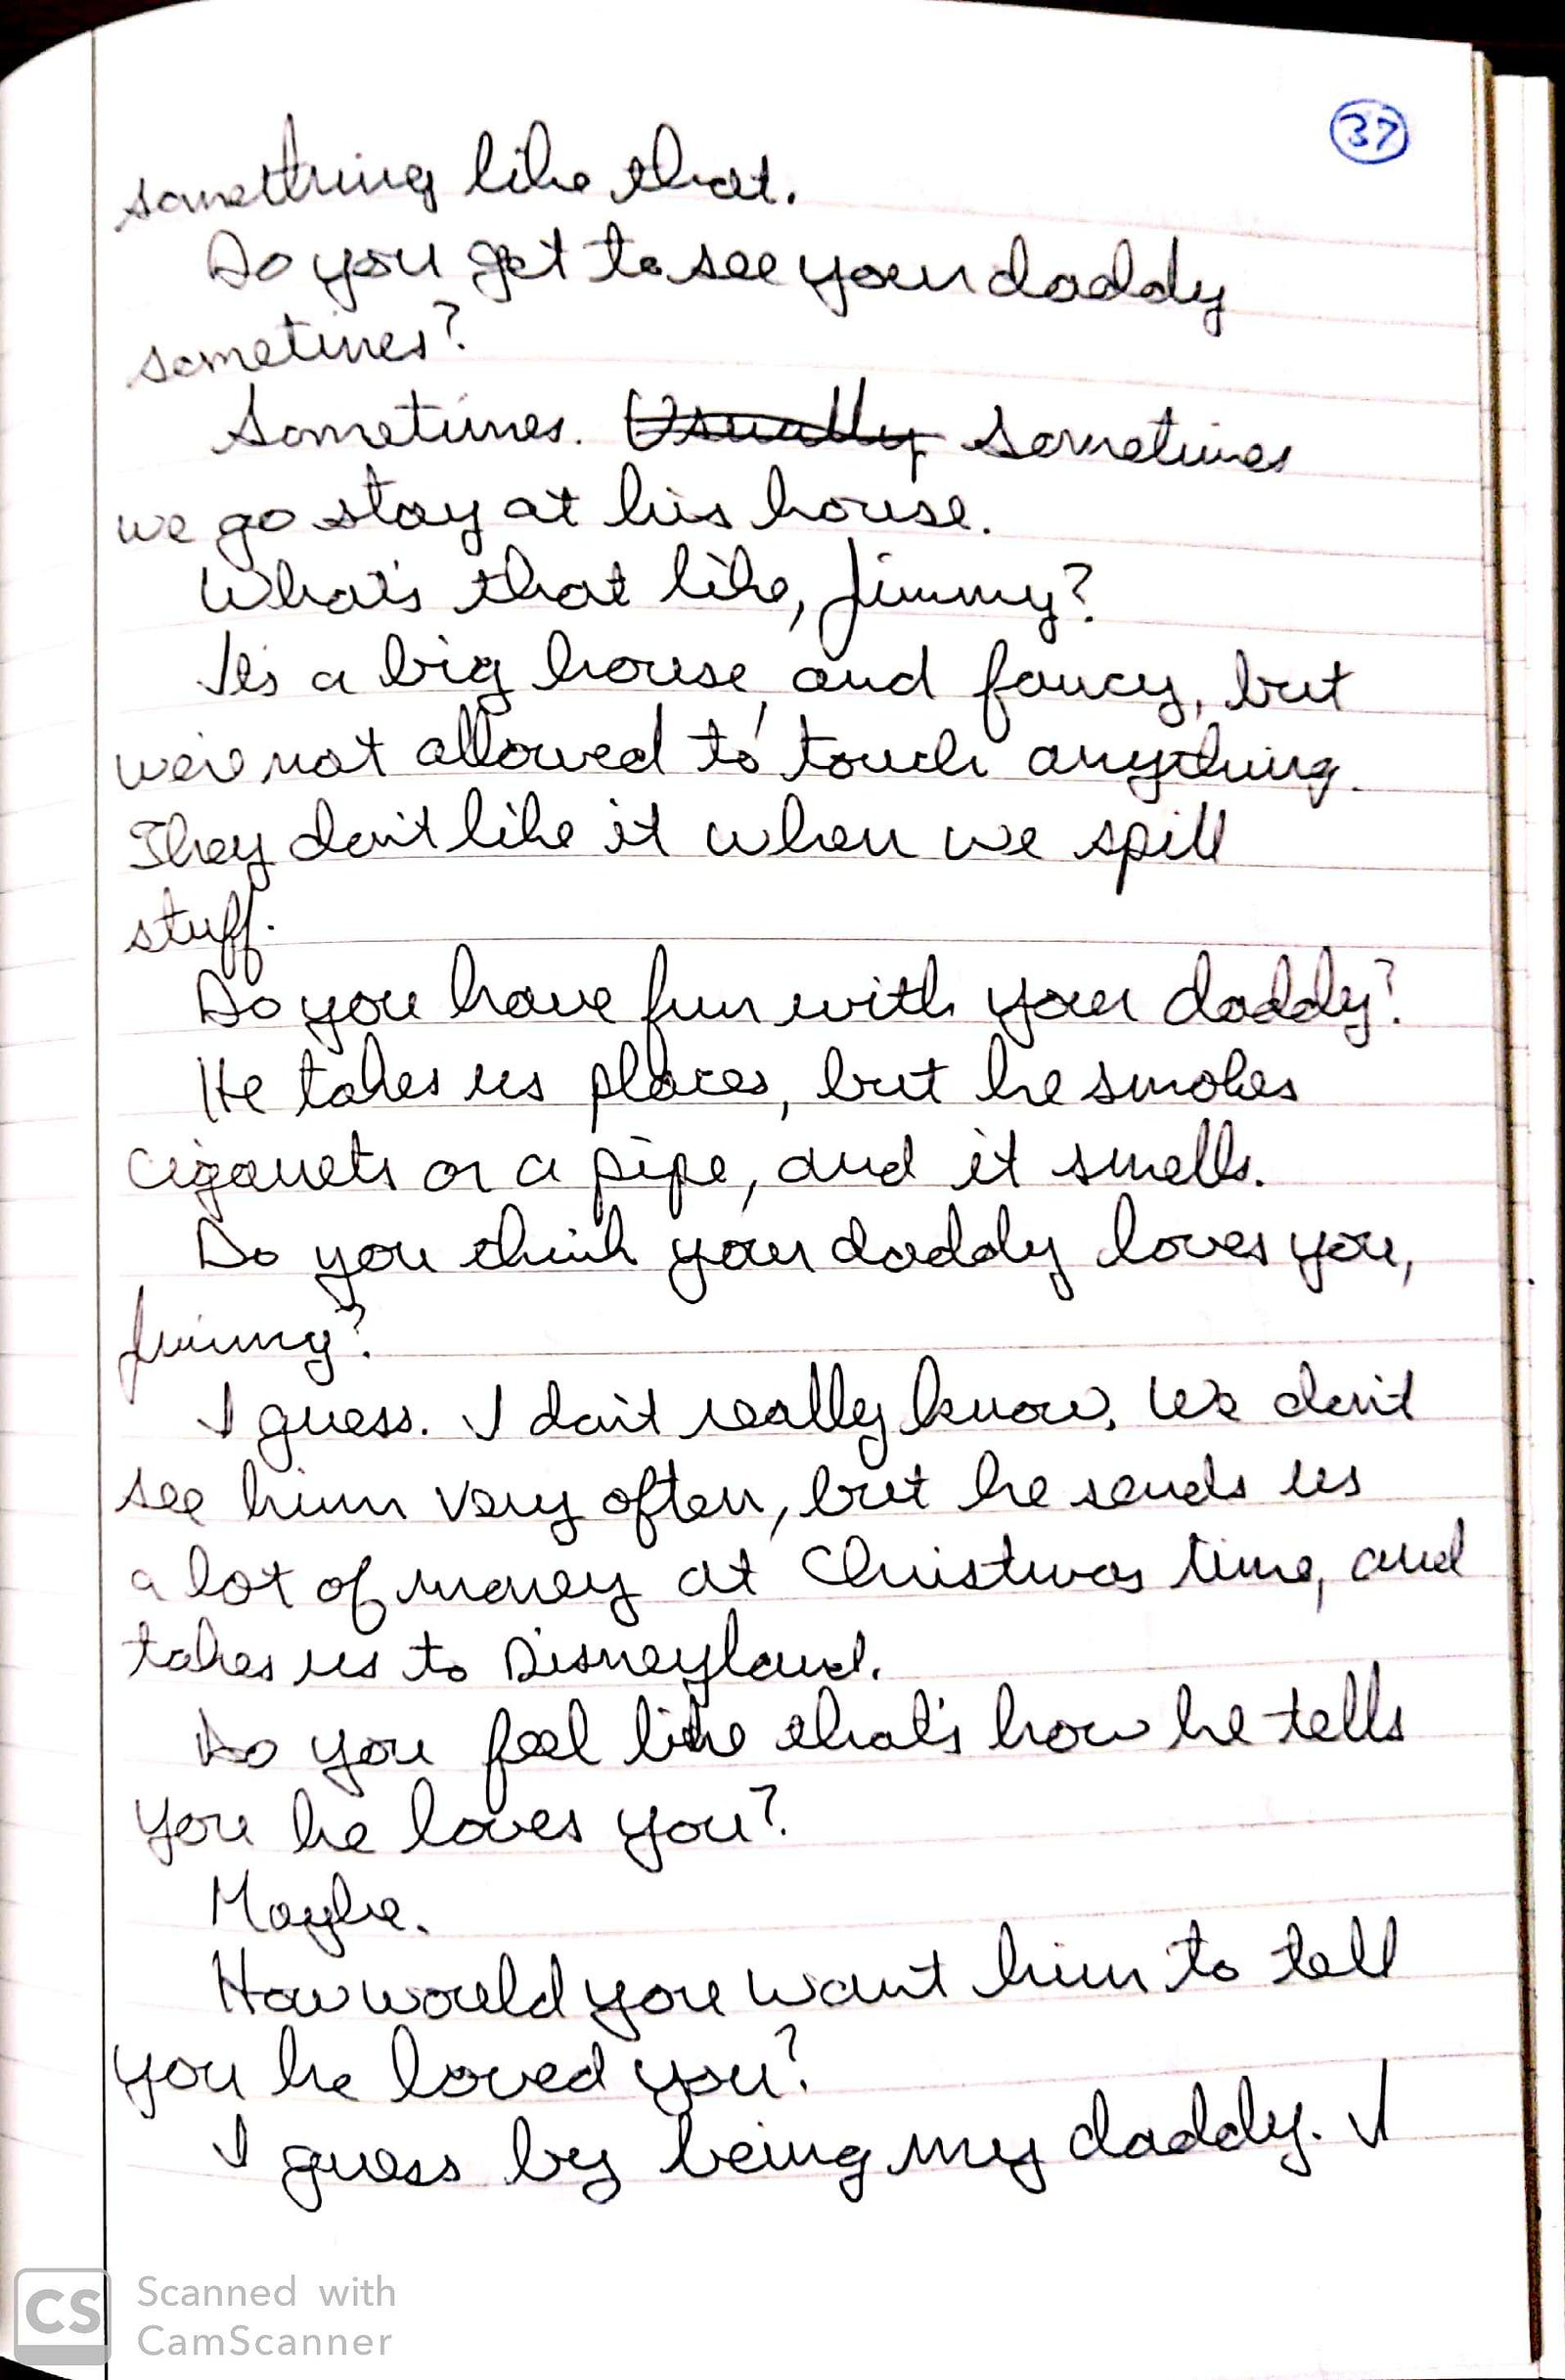 37
something like that.
Do you get to see your daddy
sometimes?
Sometimes. Usually sometimes
we go stay at his house.
What's that like, Jimmy?
It's a big house, and fancy, but
we're not allowed to touch anything.
They don't like it when we spill
stuff.
Do you have fun with your daddy?
He takes us places, but he smokes
cigarets or a pipe, and it smells.
Do you think your daddy loves you,
Jimmy?
I guess. I don't really know. We don't
see him very often, but he sends us
a lot of money at Christmas time, and
takes us to Disneyland.
Do you feel like that's how he tells
you he loves you?
Maybe.
How would you want him to tell
you he loved you?
I guess by being my daddy. I
CS Scanned with
CamScanner